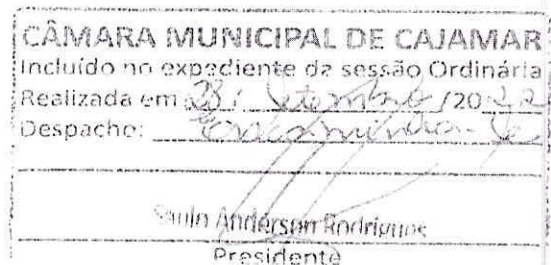 CÂMARA MUNICIPAL DE CAJAMAR
Incluído no expediente da sessão Ordinária
Realizada em 28 / Setembro /2022
Despacho: Encaminha-se
Saulo Anderson Rodrigues
Presidente